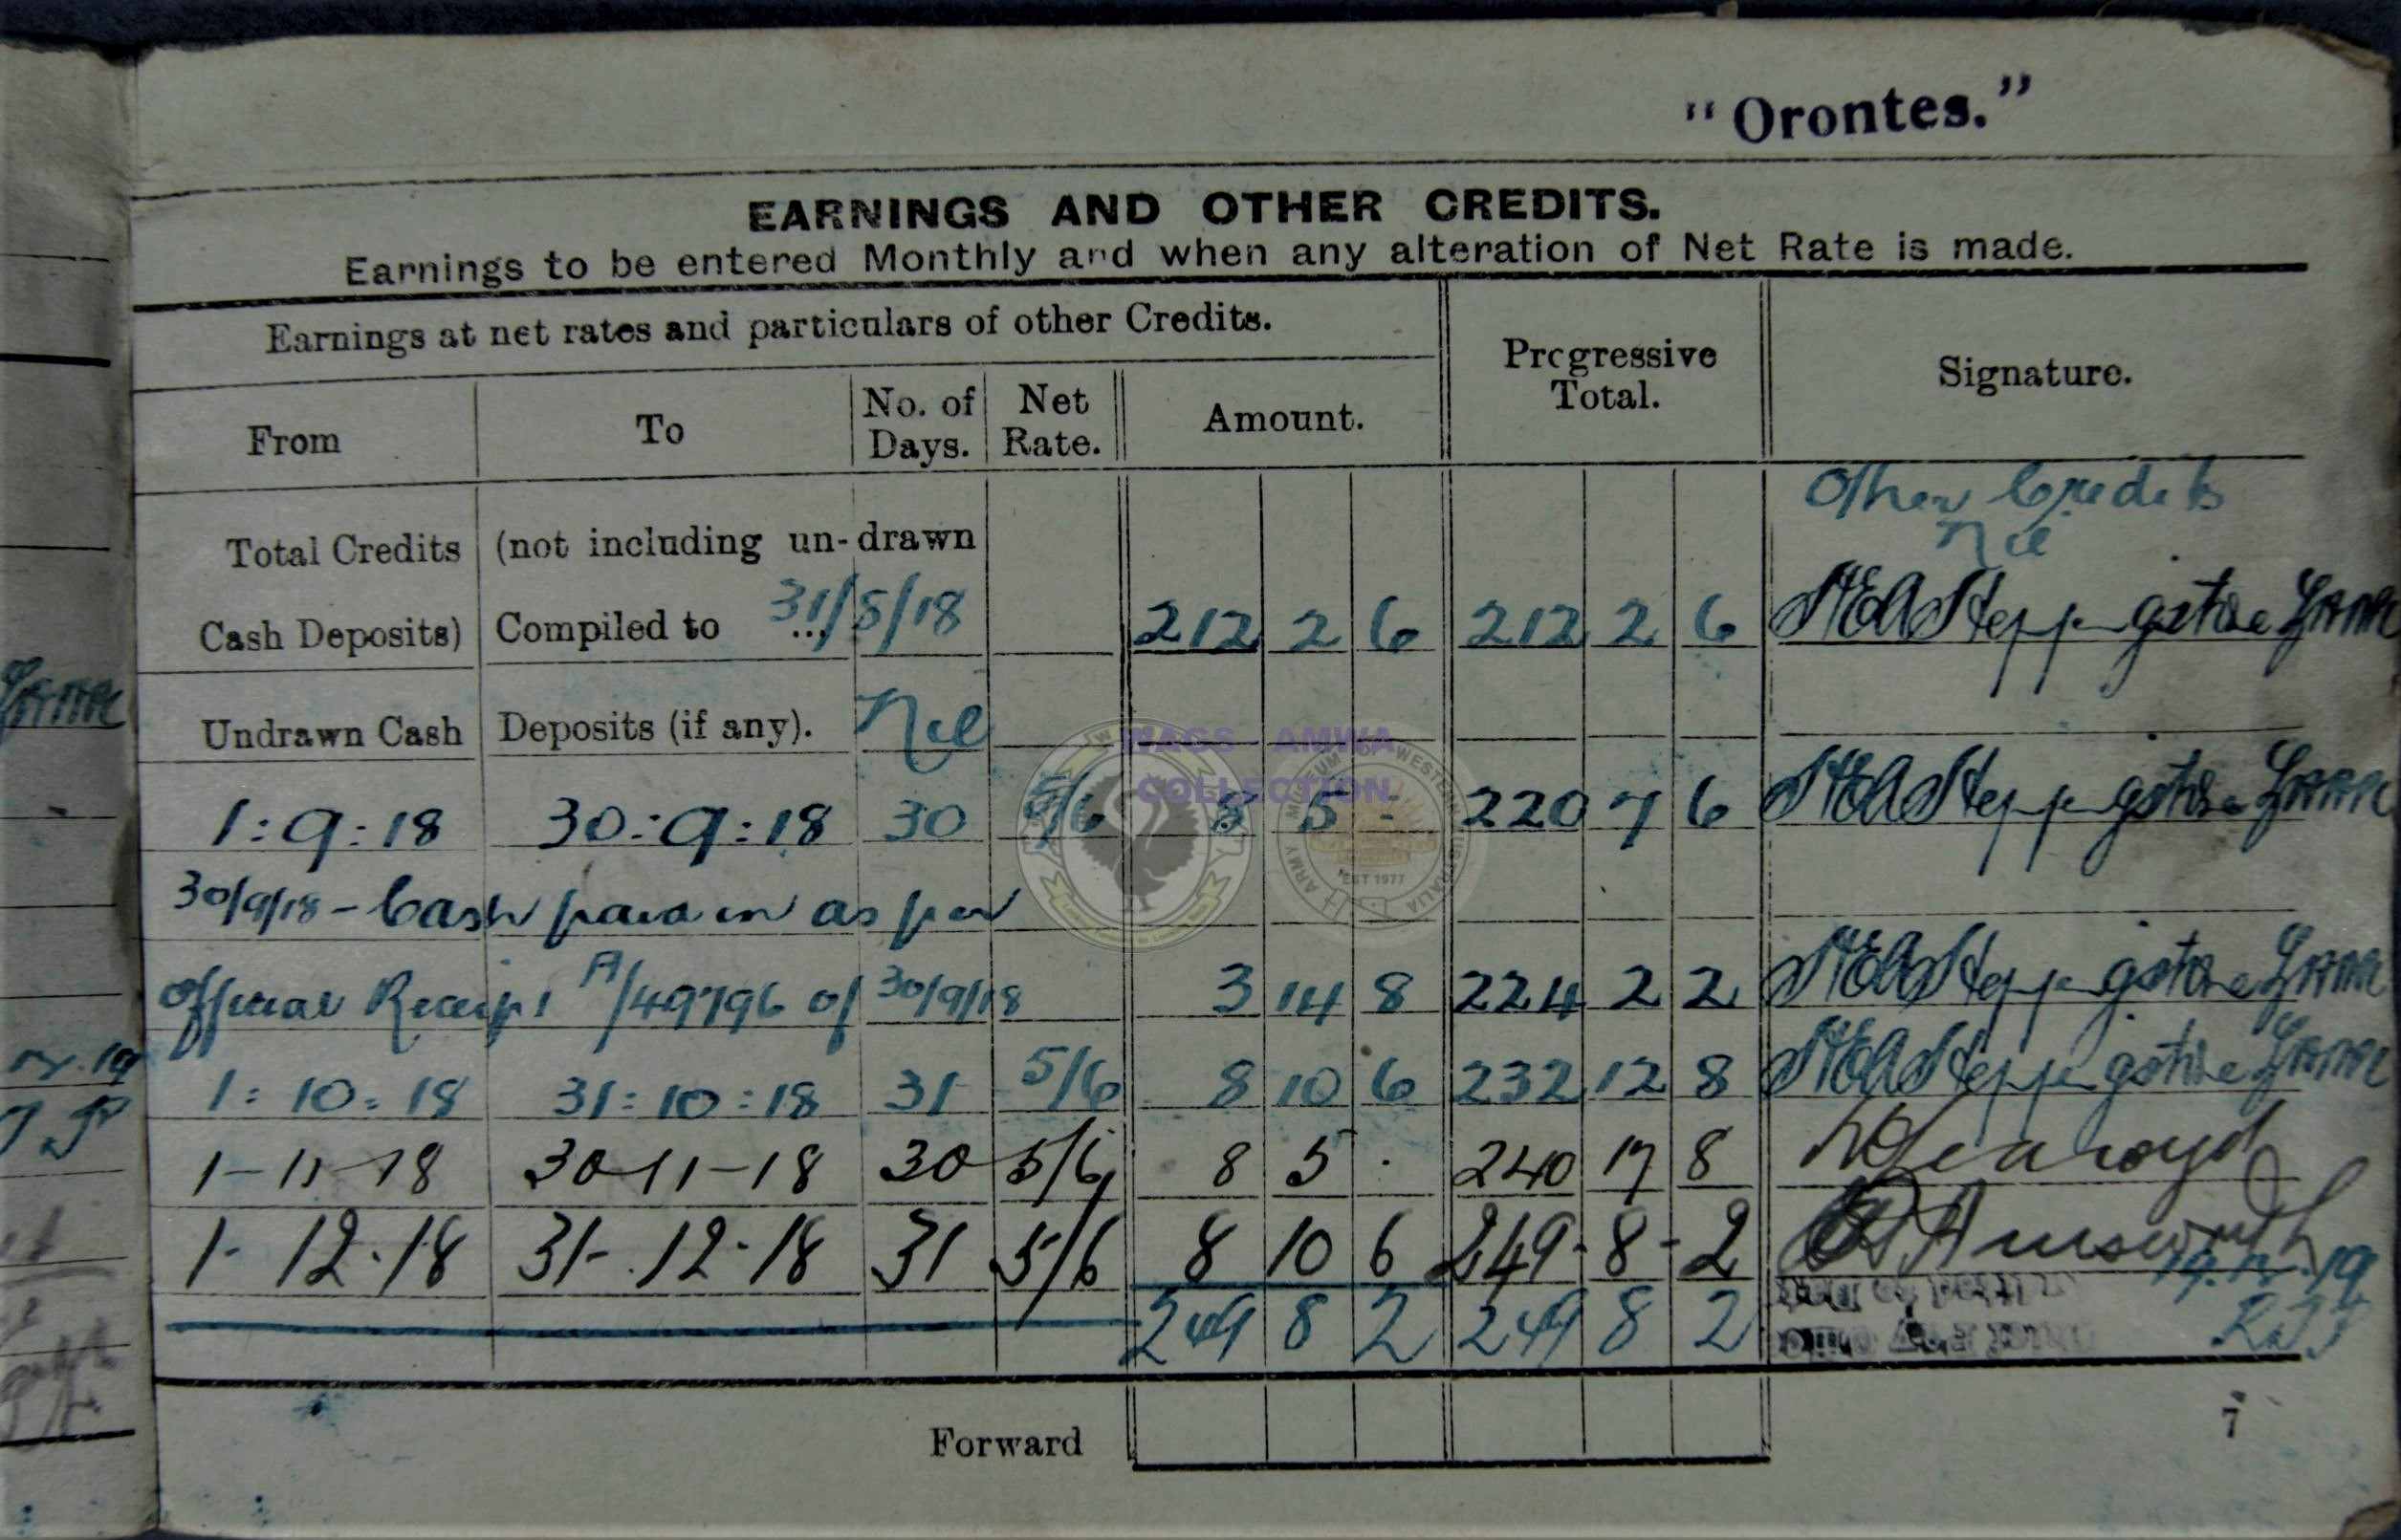 "Orontes."
EARNINGS AND OTHER CREDITS.
Earnings to be entered Monthly and when any alteration of Net Rate is made.
Earnings at net rates and particulars of other Credits.
Progressive Total.
Signature.
From To No. of Days. Net Rate. Amount.
Other Credits
Nil
Total Credits (not including un-drawn
Cash Deposits) Compiled to ... 31/8/18 212 2 6 212 2 6
Undrawn Cash Deposits (if any). Nil
WAGS - AMWA
COLLECTION
1:9:18 30:9:18 30 5/6 8 5 - 220 7 6
30/9/18 - Cash paid in as per
Official Receipt A/49796 of 30/9/18 3 14 8 224 2 2
1:10:18 31:10:18 31 5/6 8 10 6 232 12 8
1-11-18 30-11-18 30 5/6 8 5 . 240 17 8 Learoyd
1-12-18 31-12-18 31 5/6 8 10 6 249-8-2
19.12.19
249 8 2 249 8 2
Forward
7